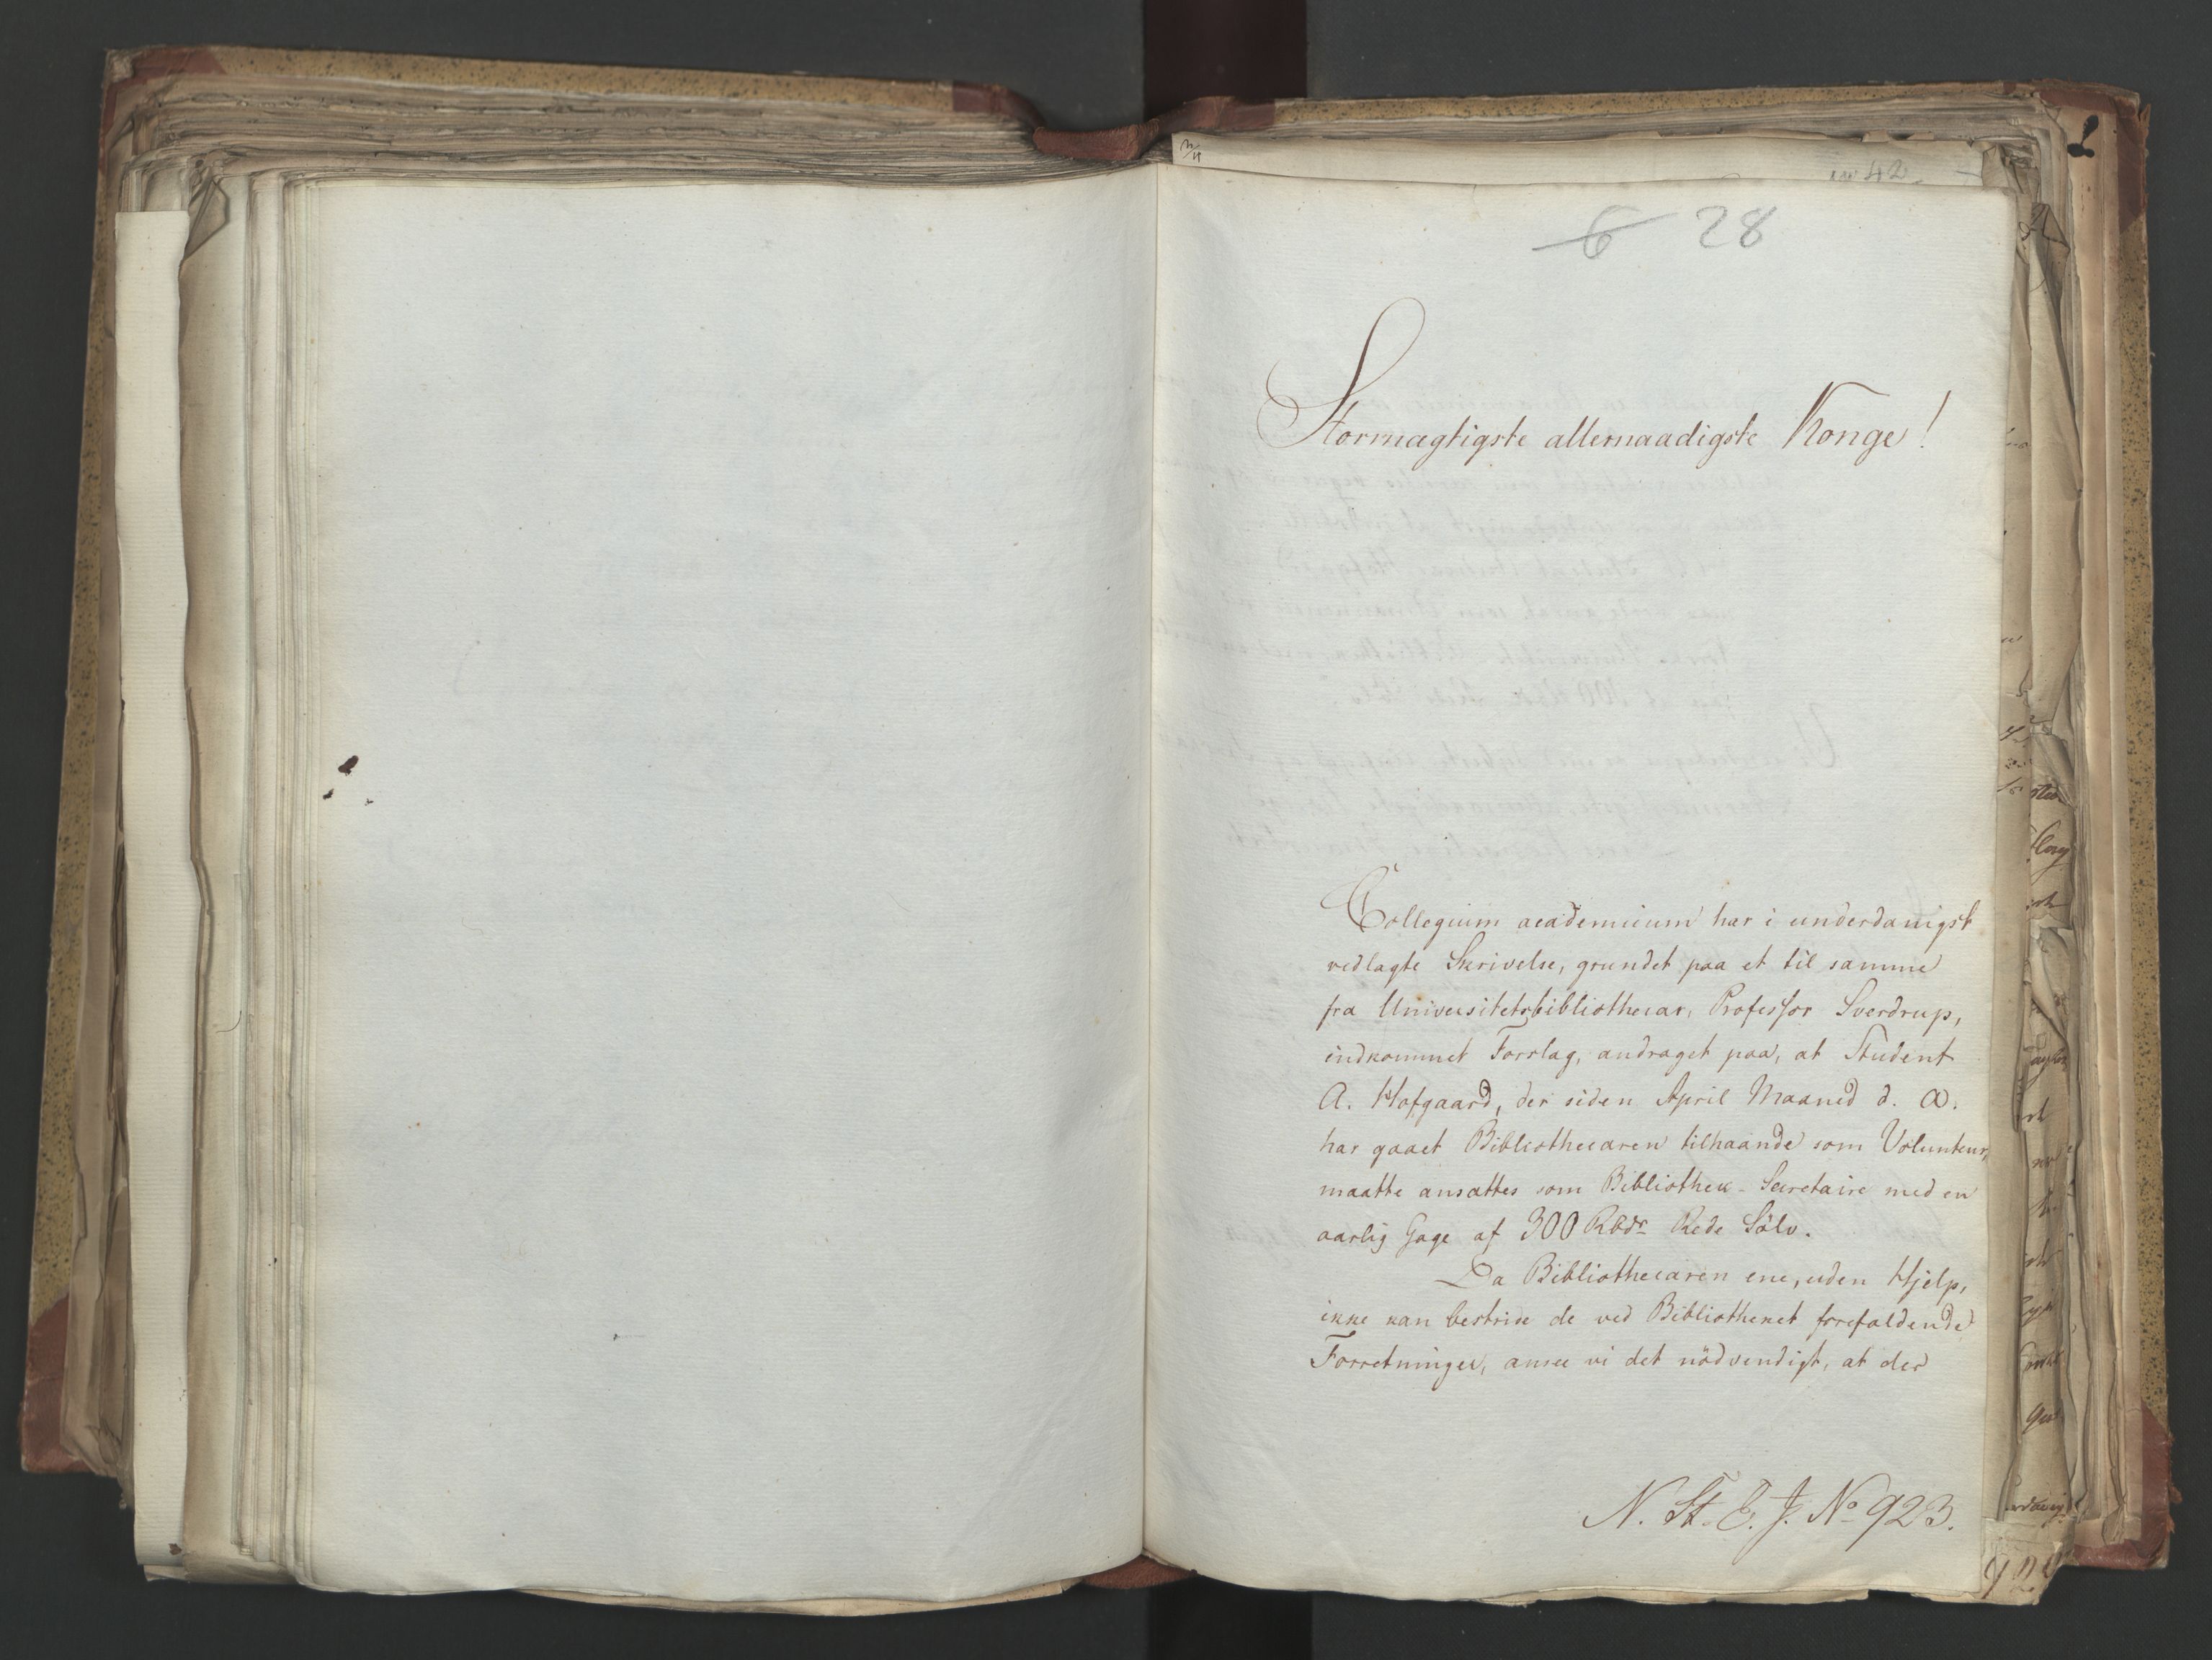 6 28
Stormægtigste allernaadigste Konge!
Collegium academicum har i underdanigst
vedlagte Skrivelse, grundet paa et til samme
fra Universitetsbibliothecar, Professor Sverdrup,
indkommet Forslag, andraget paa, at Student
A. Hofgaard, der siden April Maaned d. A.
har gaaet Bibliothecaren tilhaande som Volunteur,
maatte ansættes som Bibliothek-Secretaire med en
aarlig Gage af 300 Rbdr Rede Sölv.
Da Bibliothecaren ene, uden Hjelp,
ikke kan bestride de ved Bibliotheket forefaldende
Forretninger, ansee vi det nödvendigt, at der
N. St. E. J. No 923.